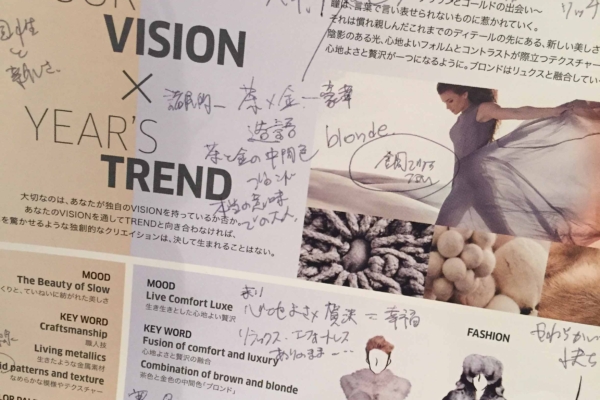 VISION
×
YEAR'S
TREND
大切なのは、あなたが独自のVISIONを持っているか否か。
あなたのVISIONを通してTRENDと向き合わなければ、
を驚かせるような独創的なクリエイションは、決して生まれることはない。
と
茶×金
豪華
造語
茶と金の中間色
ブレンド
本当の意味
での大人。
blonde.
とゴールドの出会い〜
瞳は、言葉で言い表せられないものに惹かれていく。
それは慣れ親しんだこれまでのディテールの先にある、新しい美しさ
陰影のある光、心地よいフォルムとコントラストが際立つテクスチャー
心地よさと贅沢が一つになるように。ブロンドはリュクスと融合してい
リッチ
MOOD
The Beauty of Slow
くりと、ていねいに紡がれた美しさ
KEY WORD
Craftsmanship
職人技
Living metallics
生きたような金属素材
id patterns and texture
なめらかな模様やテクスチャー
MOOD
Live Comfort Luxe
生き生きとした心地よい贅沢
KEY WORD
Fusion of comfort and luxury
心地よさと贅沢の融合
Combination of brown and blonde
茶色と金色の中間色「ブロンド」
心地よさ×贅沢=幸福
リラックス・エフォートレス
ありのまま…
FASHION
やわらかい